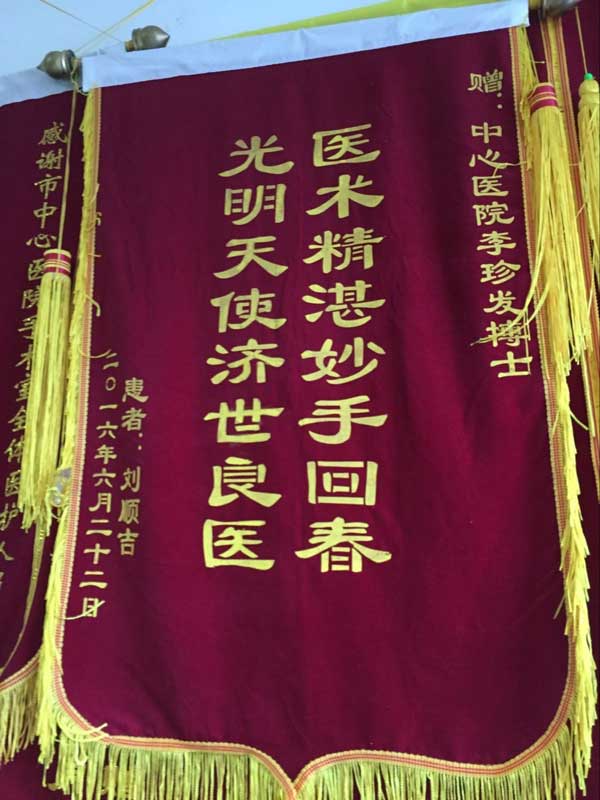 赠：中心医院李珍发博士
医术精湛妙手回春
光明天使济世良医
患者：刘顺吉
二〇一六年六月二十二日
感谢市中心医院手术室全体医护人